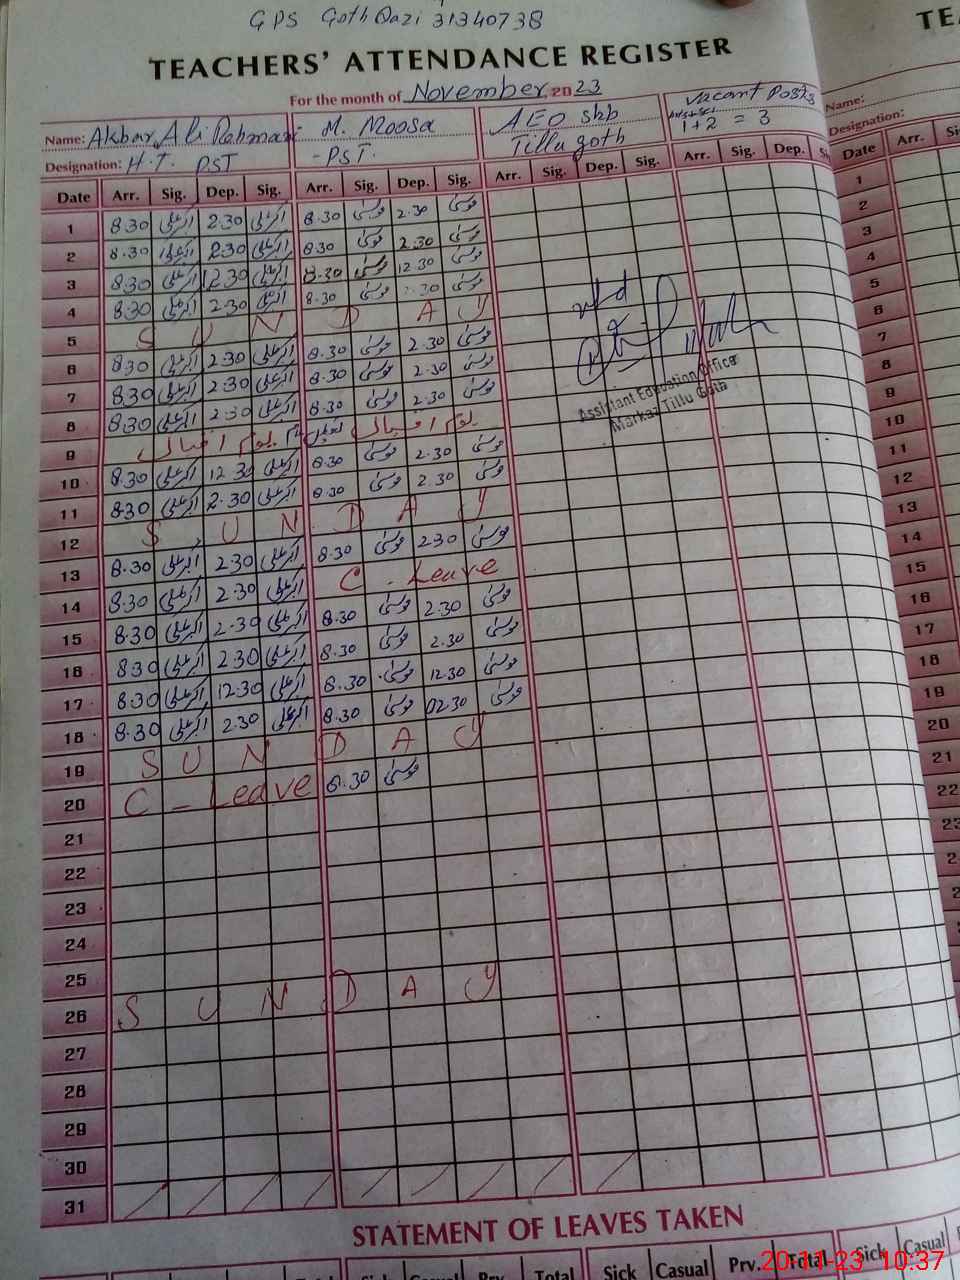 GPS Goth Qazi 31340738
TEACHERS' ATTENDANCE REGISTER
For the month of November, 2023
Name: Akbar Ali Rehmani M. Moosa AEO sbb Vacant Posts
Designation: H.T. PST PST. Tillu goth 1+2 = 3
Date Arr. Sig. Dep. Sig. Arr. Sig. Dep. Sig. Arr. Sig. Dep. Sig. Arr. Sig. Dep.
1 8.30 اکبر علی 2.30 اکبر علی 8.30 موسیٰ 2.30 موسیٰ
2 8.30 اکبر علی 2.30 اکبر علی 8.30 موسیٰ 2.30 موسیٰ
3 8.30 اکبر علی 12.30 اکبر علی 8.30 موسیٰ 12.30 موسیٰ
4 8.30 اکبر علی 2.30 اکبر علی 8.30 موسیٰ 2.30 موسیٰ
5 SUNDAY
6 8.30 اکبر علی 2.30 اکبر علی 8.30 موسیٰ 2.30 موسیٰ
7 8.30 اکبر علی 2.30 اکبر علی 8.30 موسیٰ 2.30 موسیٰ
8 8.30 اکبر علی 2.30 اکبر علی 8.30 موسیٰ 2.30 موسیٰ
9 یوم اقبال یوم اقبال
10 8.30 اکبر علی 12.30 اکبر علی 8.30 موسیٰ 2.30 موسیٰ
11 8.30 اکبر علی 2.30 اکبر علی 8.30 موسیٰ 2.30 موسیٰ
12 SUNDAY
13 8.30 اکبر علی 2.30 اکبر علی 8.30 موسیٰ 2.30 موسیٰ
14 8.30 اکبر علی 2.30 اکبر علی C - Leave
15 8.30 اکبر علی 2.30 اکبر علی 8.30 موسیٰ 2.30 موسیٰ
16 8.30 اکبر علی 2.30 اکبر علی 8.30 موسیٰ 2.30 موسیٰ
17 8.30 اکبر علی 12.30 اکبر علی 8.30 موسیٰ 12.30 موسیٰ
18 8.30 اکبر علی 2.30 اکبر علی 8.30 موسیٰ 02.30 موسیٰ
19 SUNDAY
20 C - Leave 8.30 موسیٰ
21
22
23
24
25
26 SUNDAY
27
28
29
30
31
Assistant Education Officer
Markaz Tillu Goth
STATEMENT OF LEAVES TAKEN
Sick Casual Prv. Total Sick Casual Prv. Total Sick Casual
TE
Name:
Designation:
Date Arr.
1
2
3
4
5
6
7
8
9
10
11
12
13
14
15
16
17
18
19
20
21
22
23
20-11-23 10:37